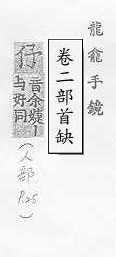 龍龕手鏡
卷二部首缺
仔
音余㜘丨
与好同
(人部 P25)